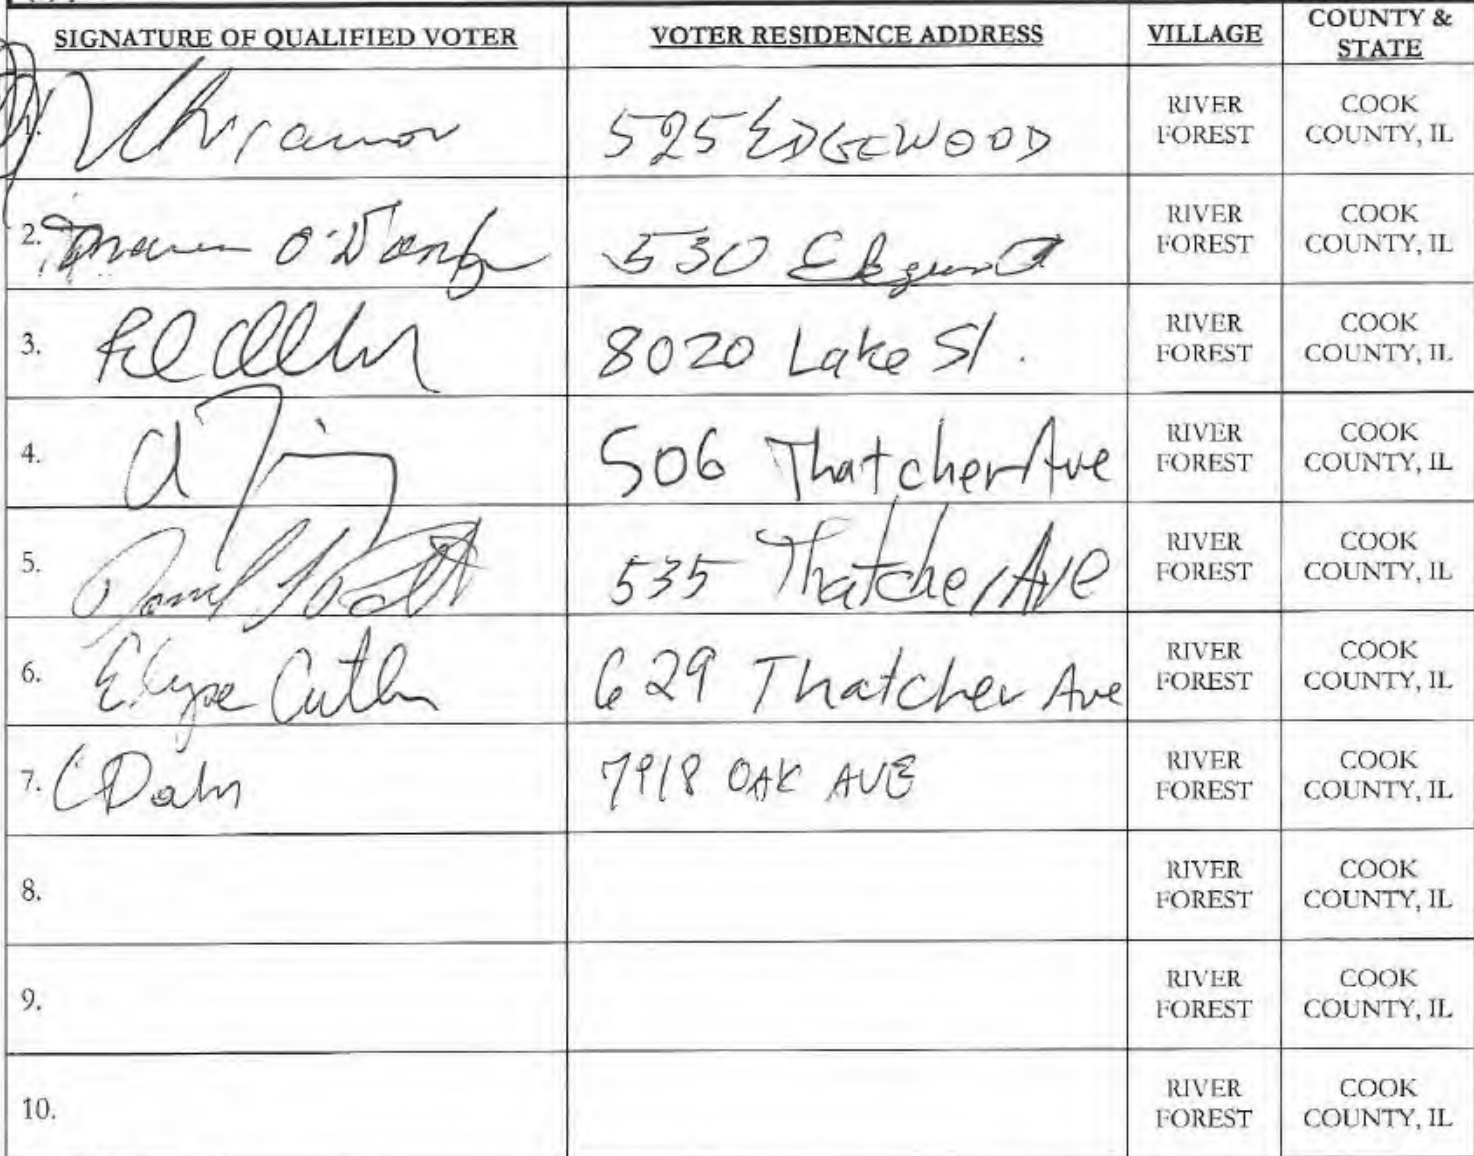 SIGNATURE OF QUALIFIED VOTER VOTER RESIDENCE ADDRESS VILLAGE COUNTY & STATE
1. 525 EDGEWOOD RIVER FOREST COOK COUNTY, IL
2. O'Donh 530 RIVER FOREST COOK COUNTY, IL
3. 8020 Lake St. RIVER FOREST COOK COUNTY, IL
4. 506 Thatcher Ave RIVER FOREST COOK COUNTY, IL
5. 535 Thatcher Ave RIVER FOREST COOK COUNTY, IL
6. Cutler 629 Thatcher Ave RIVER FOREST COOK COUNTY, IL
7. C Dahn 7918 OAK AVE RIVER FOREST COOK COUNTY, IL
8. RIVER FOREST COOK COUNTY, IL
9. RIVER FOREST COOK COUNTY, IL
10. RIVER FOREST COOK COUNTY, IL